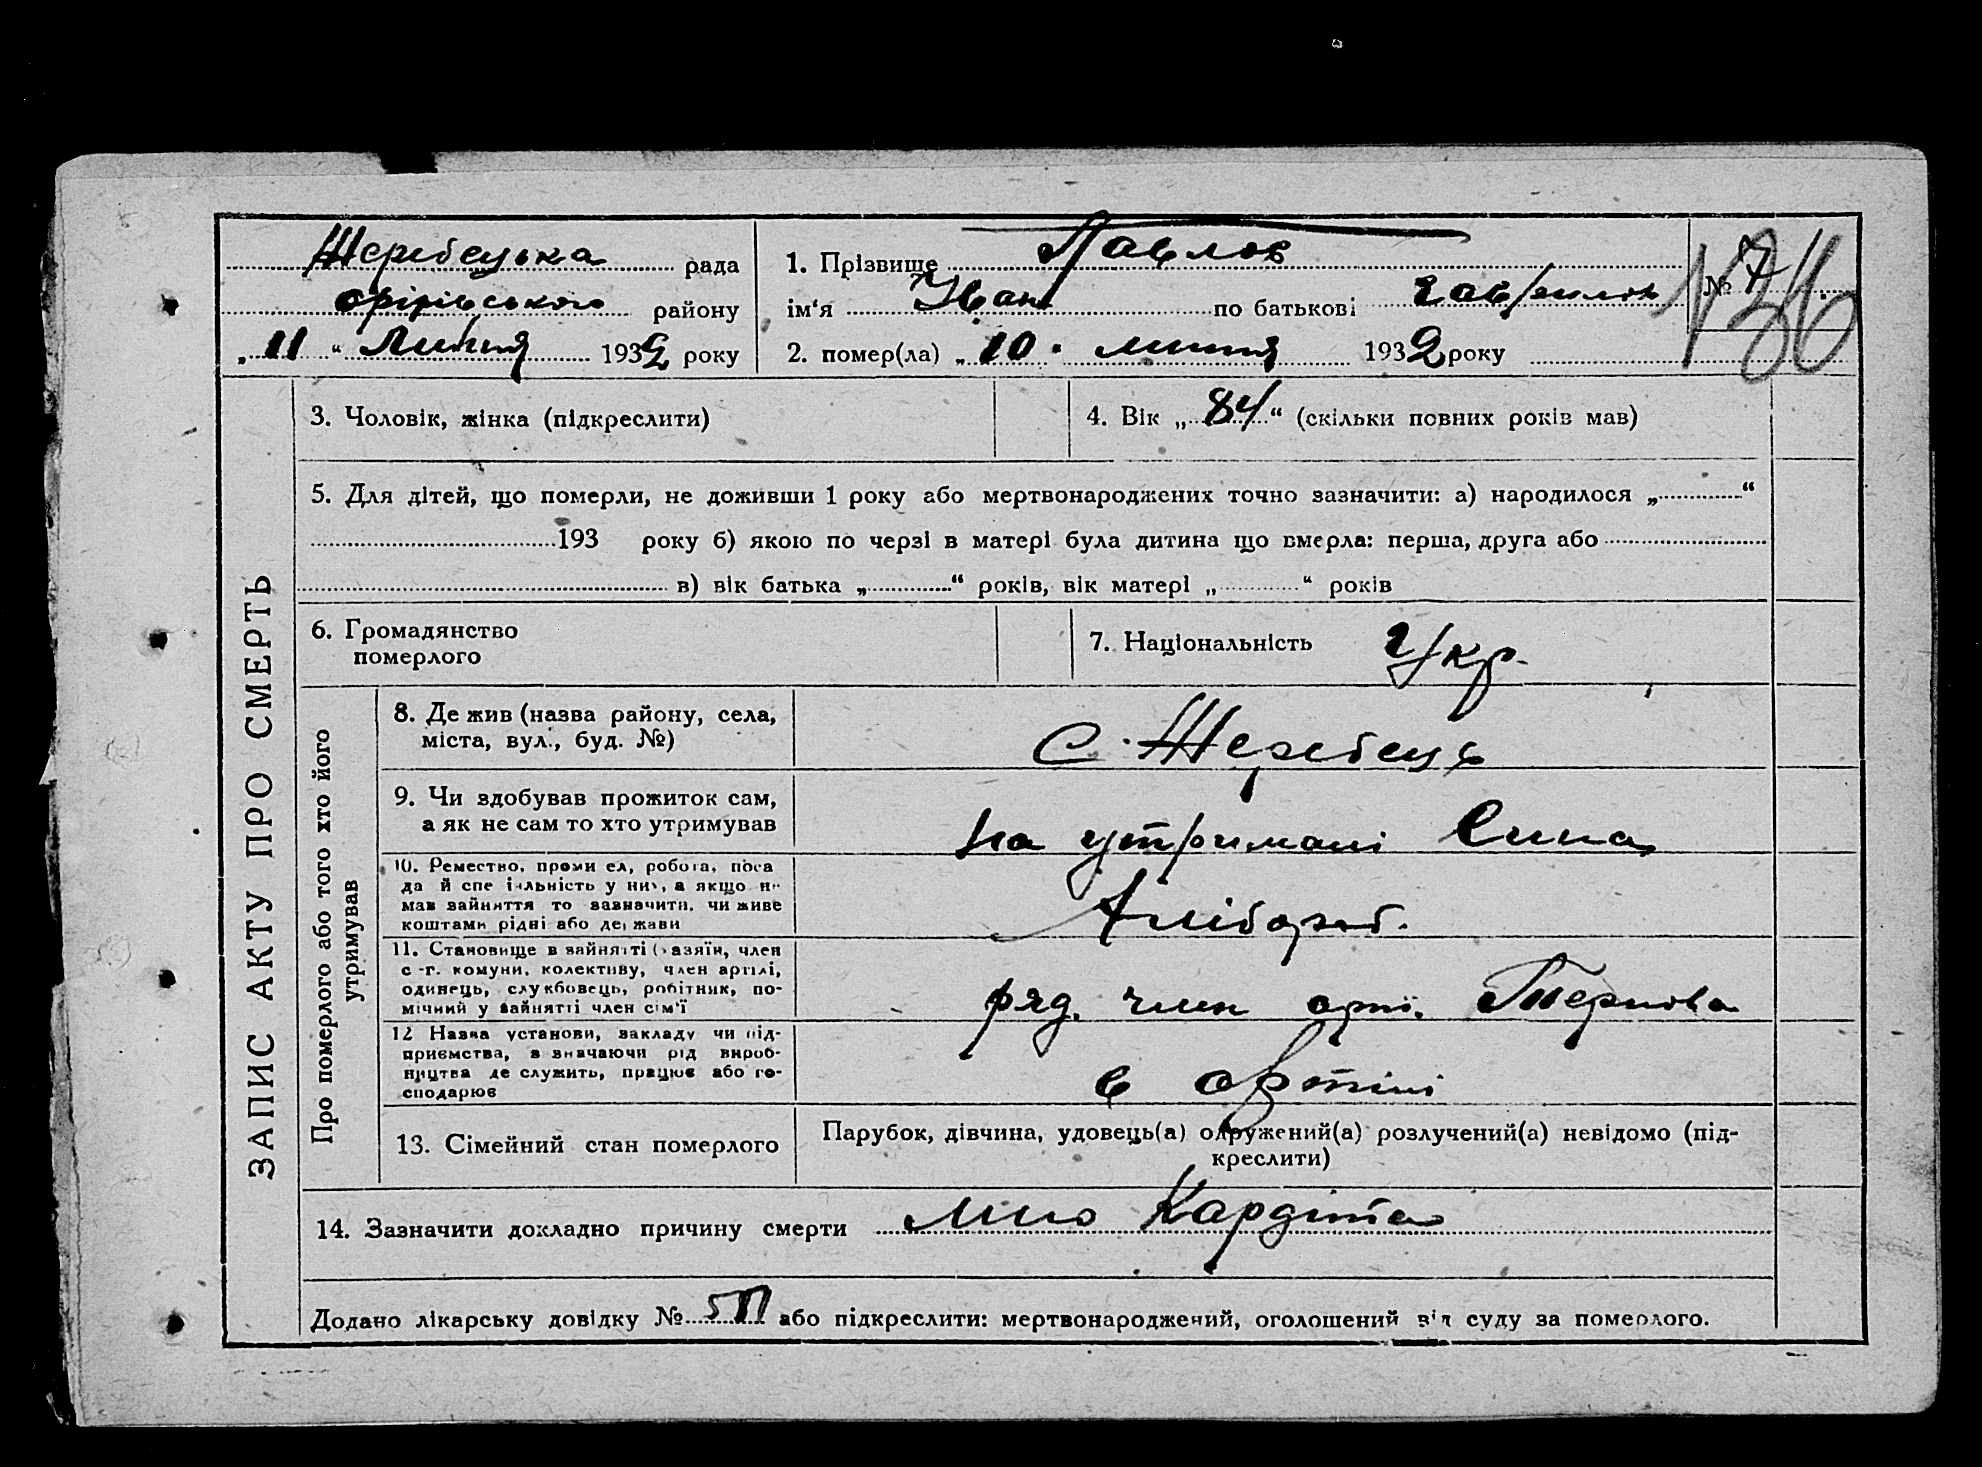 Жеребецька рада
оріхівського району
„ 11 “ Липня 1932 року
1. Прізвище Павлов
ім‘я Іван по батькові
2. помер(ла) „ 10 липня 1932 року
№ 7
136
ЗАПИС АКТУ ПРО СМЕРТЬ
3. Чоловік, жінка (підкреслити)
4. Вік „ 84 “ (скільки повних років мав)
5. Для дітей, що померли, не доживши 1 року або мертвонароджених точно зазначити: а) народилося „ “
193 року б) якою по черзі в матері була дитина що вмерла: перша, друга або
в) вік батька „ “ років, вік матері „ “ років
6. Громадянство
померлого
7. Національність Укр.
Про померлого або того хто його
утримував
8. Де жив (назва району, села,
міста, вул., буд. №)
с. Жеребець
9. Чи здобував прожиток сам,
а як не сам то хто утримував
на утримані Сина
10. Ремество, проми ел, робота, поса
да й спе іяльність у них, а якщо н
мав зайняття то зазначити, чи живе
коштами рідні або держави
Хлібороб.
11. Становище в зайнятті (хазяїн, член
с.-г. комуни, колективу, член артілі,
одинець, службовець, робітник, по-
мічний у зайнятті член сім‘ї
ряд. член арт.
12 Назва установи, закладу чи під-
приємства, зазначаючи рід вироб-
ництва де служить, працює або го-
сподарює
в артілі
13. Сімейний стан померлого
Парубок, дівчина, удовець(а) одружений(а) розлучений(а) невідомо (під-
креслити)
14. Зазначити докладно причину смерти Міо Кардіта
Додано лікарську довідку № або підкреслити: мертвонароджений, оголошений від суду за померлого.